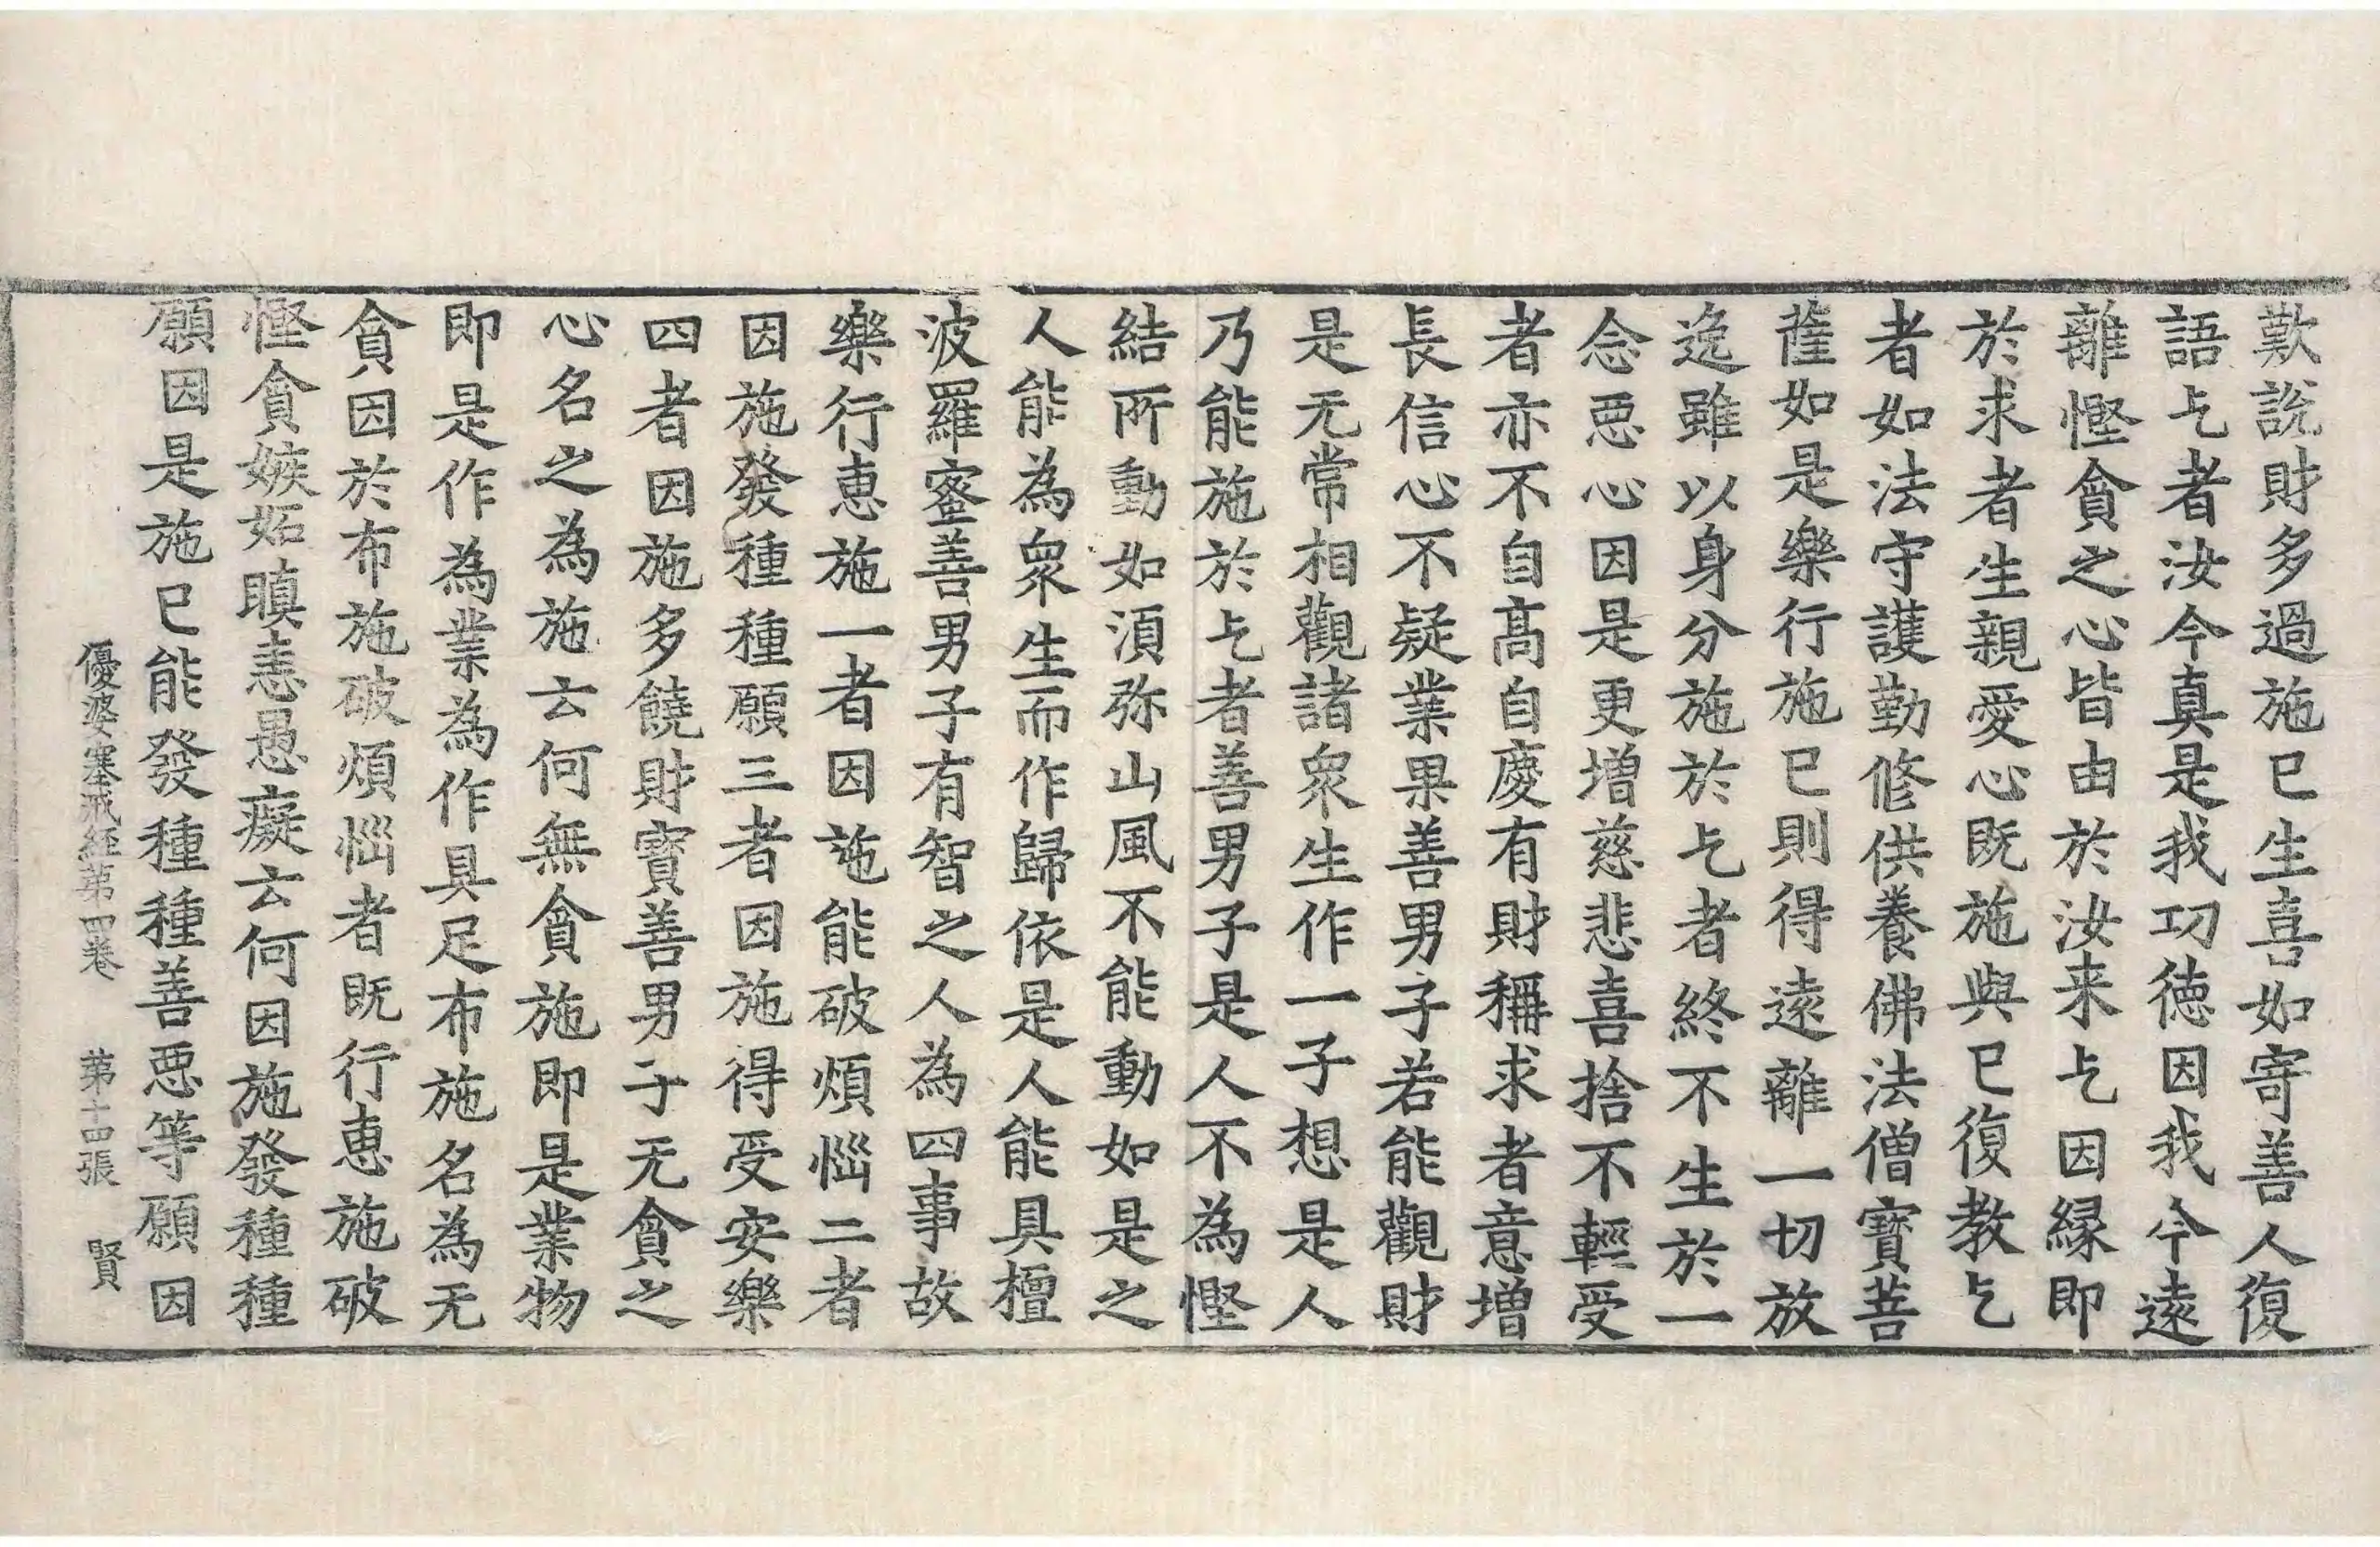 歎說財多過施已生喜如寄善人復
語乞者汝今真是我功徳因我今遠
離慳貪之心皆由於汝来乞因縁即
於求者生親愛心既施與已復教乞
者如法守護勤修供養佛法僧寶菩
薩如是樂行施已則得遠離一切放
逸雖以身分施於乞者終不生於一
念惡心因是更增慈悲喜捨不輕受
者亦不自髙自慶有財稱求者意增
長信心不疑業果善男子若能觀財
是无常相觀諸衆生作一子想是人
乃能施於乞者善男子是人不為慳
結所動如湏弥山風不能動如是之
人能為衆生而作歸依是人能具檀
波羅蜜善男子有智之人為四事故
樂行恵施一者因施能破煩惱二者
因施發種種願三者因施得受安樂
四者因施多饒財寶善男子无貪之
心名之為施云何無貪施即是業物
即是作為業為作具足布施名為无
貪因於布施破煩惱者既行恵施破
慳貪嫉妬瞋恚愚癡云何因施發種種
願因是施已能發種種善惡等願因
優婆塞戒經第四卷　第十四張　賢